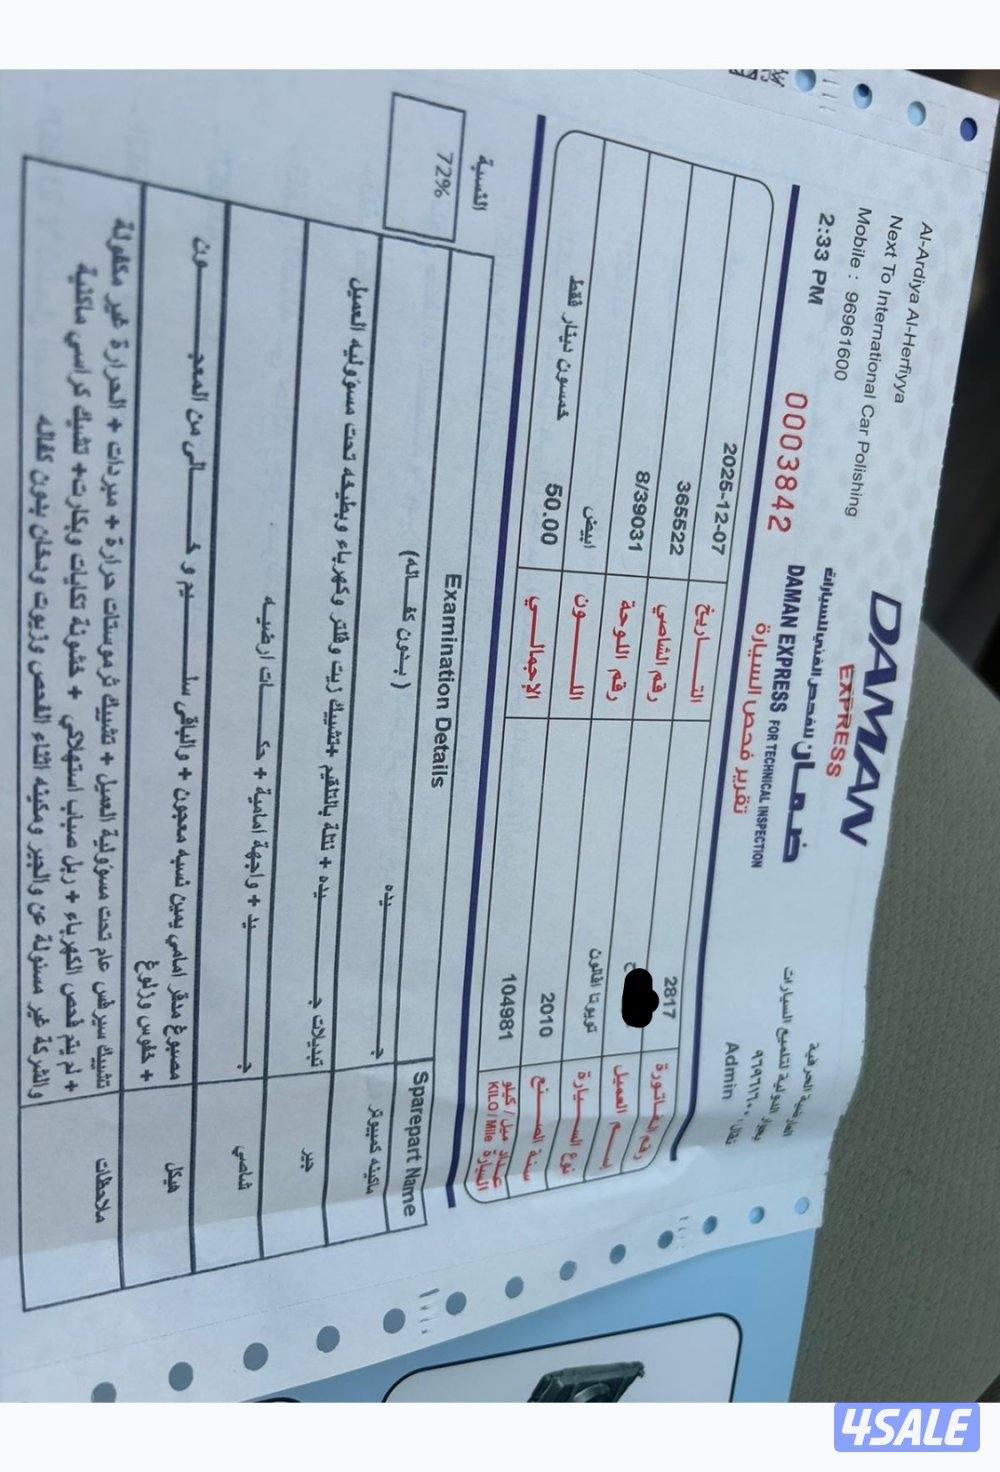 Al-Ardiya Al-Herfiyya
Next To International Car Polishing
Mobile : 96961600
2:33 PM
DAMAN
EXPRESS
ضمان للفحص الفني للسيارات
DAMAN EXPRESS FOR TECHNICAL INSPECTION
تقرير فحص السيارة
0003842
العارضية الحرفية
بجوار الدولية لتلميع السيارات
نقال: ٩٦٩٦١٦٠٠
Admin
رقم الفاتورة 2817
التـــاريخ 2025-12-07
إسم العميل
رقم الشاصي 365522
نوع السيارة تويوتا افالون
رقم اللوحة 8/39031
سنة الصنع 2010
اللـــون ابيض
عداد ميل / كيلو
KILO / Mile السيارة
104981
الإجمالي 50.00 خمسون دينار فقط
Sparepart Name
Examination Details
النسبة
ماكينه كمبيوتر
جـــيده (بدون كفـــاله)
72%
جير
تبديلات جـــيده + نتلة بالتلقيم +تشييك زيت وفلتر وكهرباء وبطيخه تحت مسؤوليه العميل
شاصي
جـــيد + واجهة امامية + حكـــات ارضيـــه
هيكل
مصبوغ مدقر امامي يمين نسبه معجون + والباقي سلـــيم و خـــالى من المعجـــون
+ خفوس وزلوغ
ملاحظات
تشييك سيرفس عام تحت مسؤولية العميل + تشييك ثرموستات حرارة + مبردات + الحرارة غير مكفولة
+ لم يتم فحص الكهرباء + ربل صباب استهلاكي + خشونة تكايات وبكارت+ تشييك كراسي ماكنية
والشركة غير مسئولة عن والجير ومكينه اثناء الفحص وزيوت ودخان بدون كفاله
4SALE